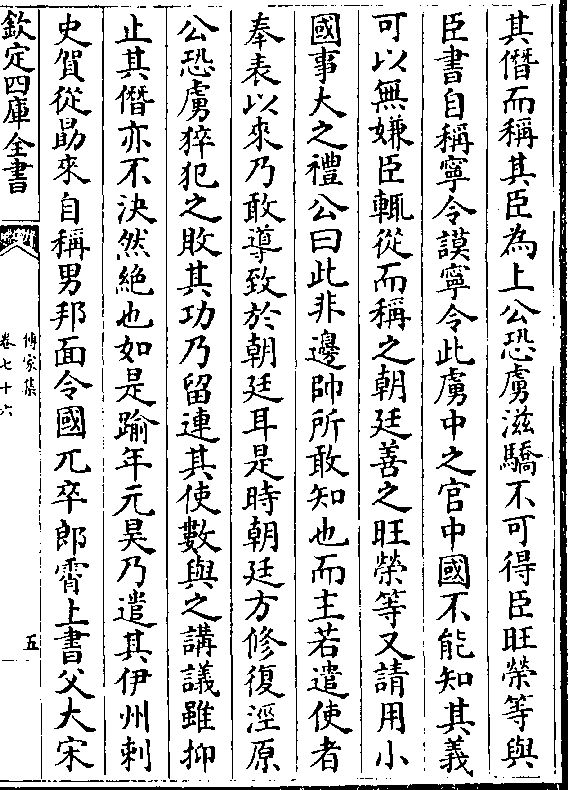 其僭而稱其臣為上公恐虜滋驕不可得臣旺榮等與
臣書自稱寧令謨寧令此虜中之官中國不能知其義
可以無嫌臣輒從而稱之朝廷善之旺榮等又請用小
國事大之禮公曰此非邊帥所敢知也而主若遣使者
奉表以來乃敢導致於朝廷耳是時朝廷方修復涇原
公恐虜猝犯之敗其功乃留連其使數與之講議雖抑
止其僭亦不決然絶也如是踰年元昊乃遣其伊州刺
史賀從勗來自稱男邦面令國兀卒郎霄上書父大宋
欽定四庫全書
傳家集
卷七十六
五